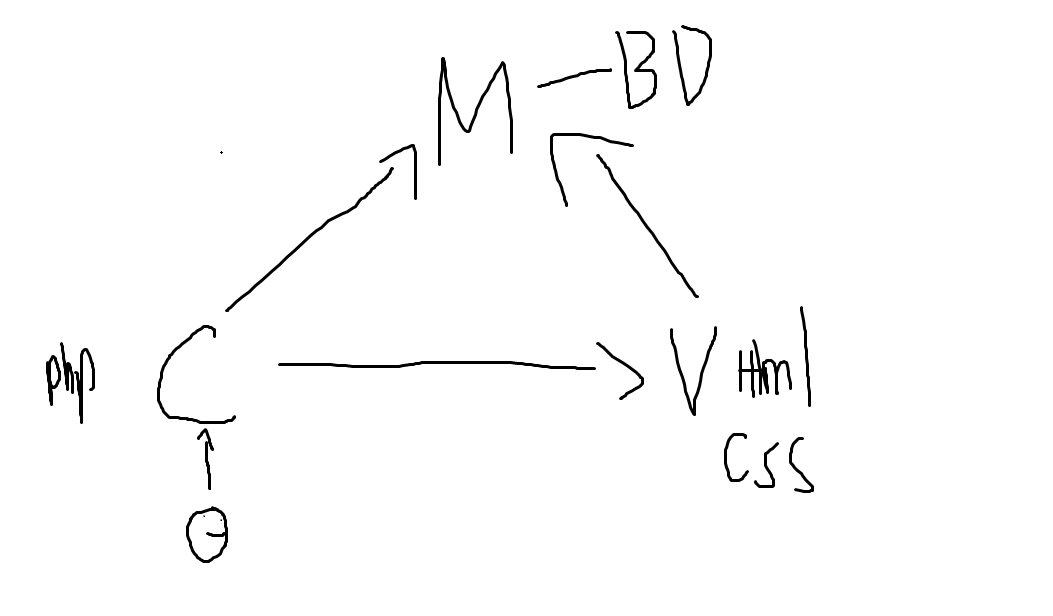 M BD
php C V Html
CSS